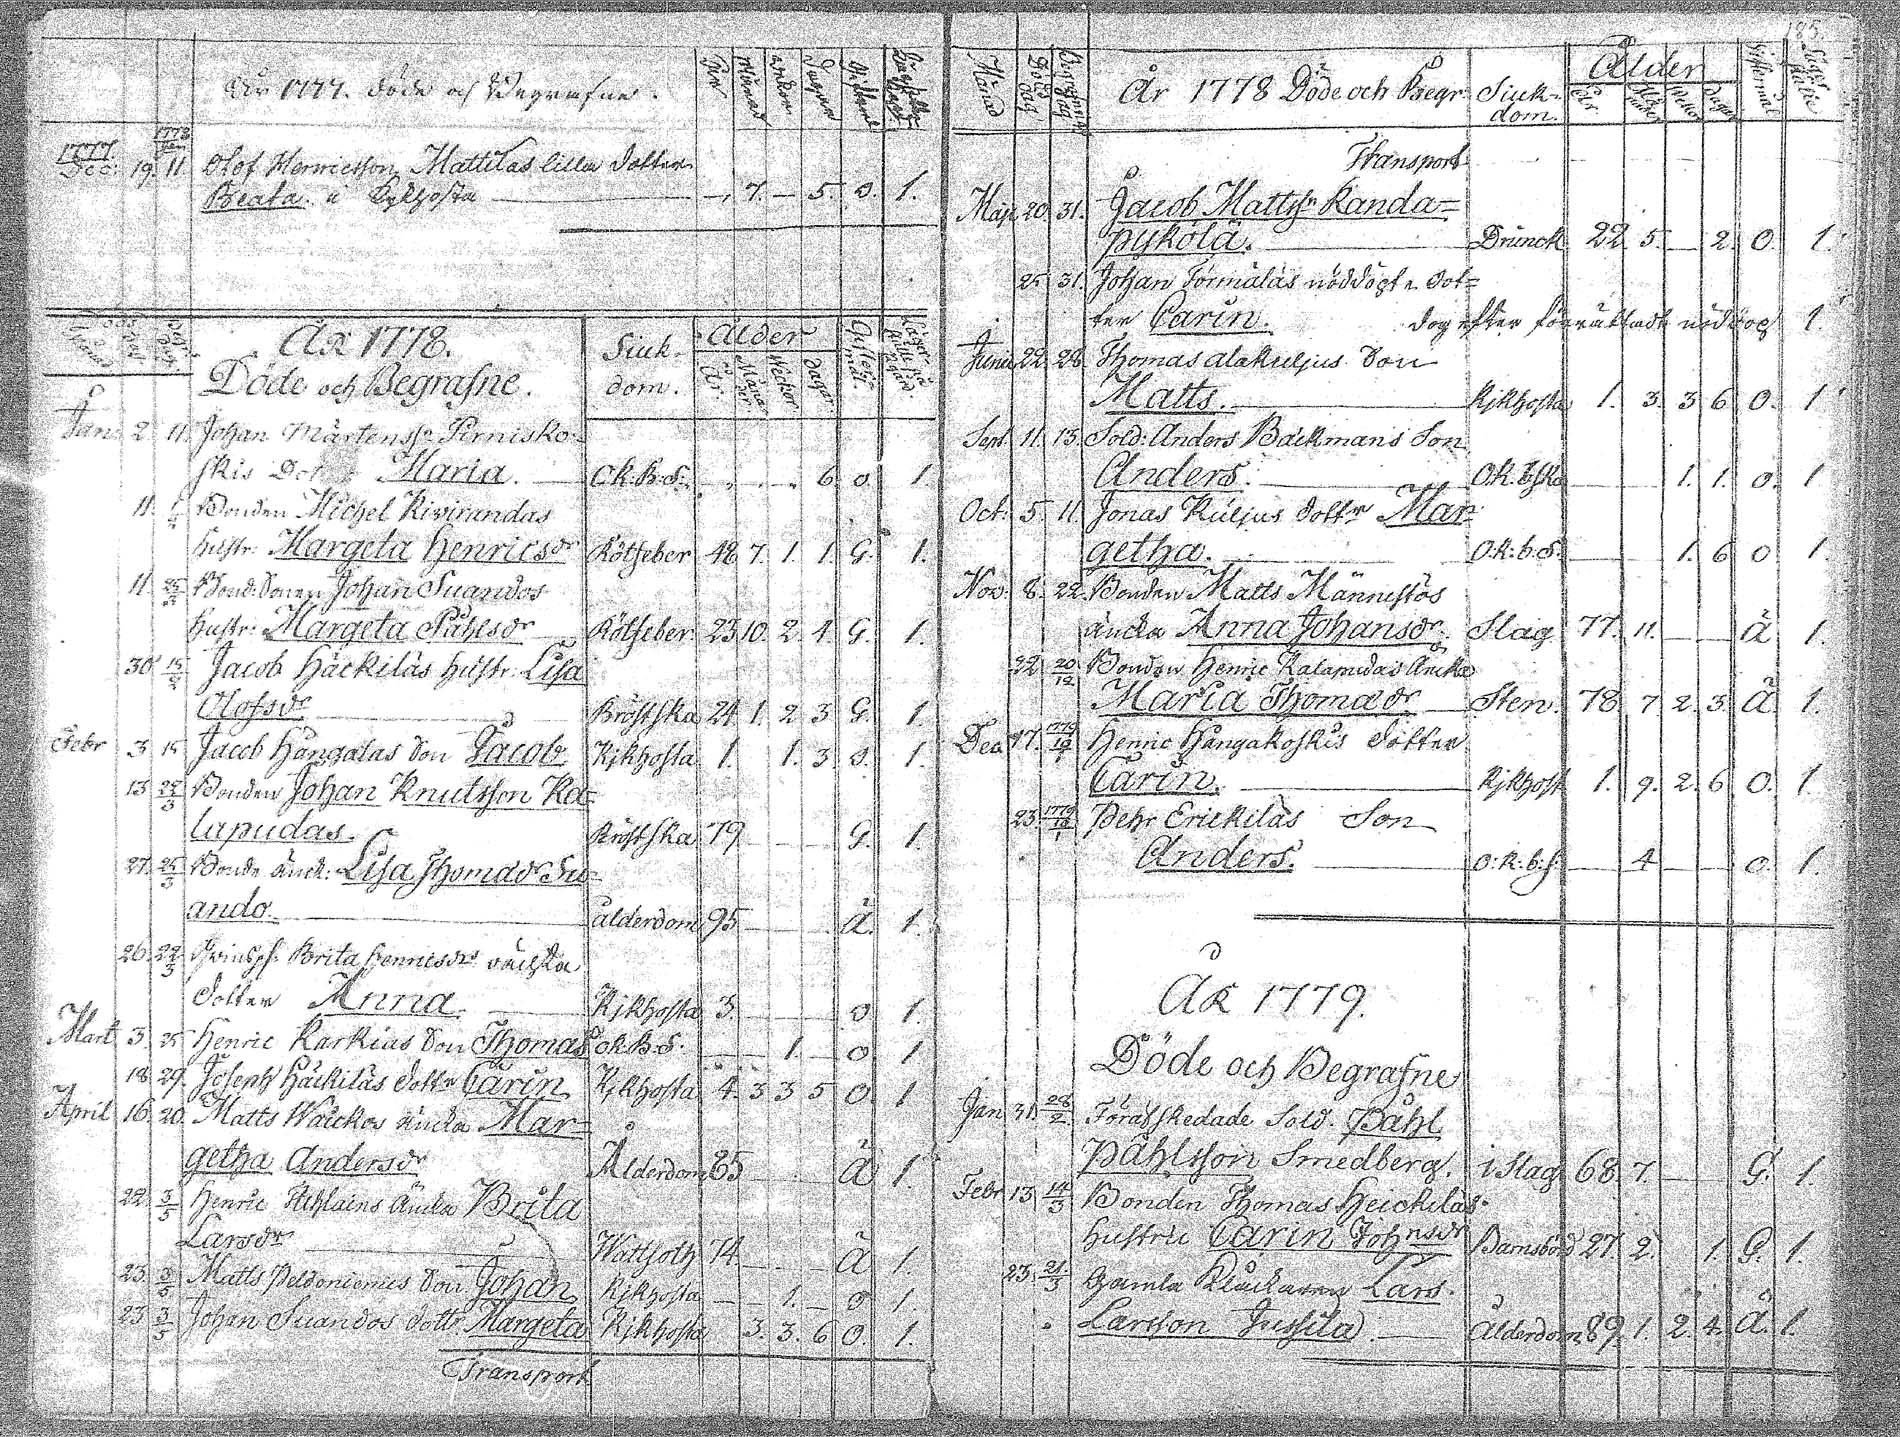 År 1777. Döde och Begrafne.
År Månad Veckor Dagar
1777 1778
Dec: 19. 11. Olof Henricsson Mattilas lilla dotter
Beata. i Kykhosta — 7. — 5. o. 1.
ÅR 1778.
Döde och Begrafne.
Siuk-
dom.
Ålder
År. Måna
der. Veckor Dagar
Jan: 2 11. Johan Mårtenss: Pirnisko-
skis Dott: Maria. Ok: B: S: 6 o. 1.
11. Bonden Michel Kivirandas
hustr: Margeta Henricsdr Rötfeber 48 7. 1. 1. G. 1.
11. 25/2 Bond: Sonen Johan Suandos
hustr: Margeta Påhlsdr Rötfeber 23 10. 2. 4. G. 1.
30 15/2 Jacob Häckiläs hustr: Lisa
Olofsdr Bröstska 24 1. 2 3 G. 1.
Febr 3 15 Jacob Hangalas Son Jacob Kjkhosta 1. 1. 3 o. 1.
13 22/3 Bonden Johan Knutsson Ka-
lapudas. Bröstska 79 G. 1.
27. 25/3 Bonde Änck: Lisa Thomadr Su-
ando. ålderdom 95 Ä. 1.
26. 22/3 Brita Henricsdrs oäckta
dotter Anna Kjkhosta 3. o 1.
Mart 3. 25 Henric Karkias Son Thomas ok: B: S. 1. o. 1
18 29. Joseph Häckiläs dottr Carin Kjkhosta 4. 3 3 5 o. 1
April 16. 20. Matts Waickos äncka Mar-
getha Andersdr Ålderdom 85 Ä 1
22. 3/5 Henric Äncka Brita
Larsdr Wattsoth 74. Ä 1
23. 3/5 Matts Peldoniemis Son Johan Kjkhosta 1. o 1.
23 3/5 Johan Suandos dottr Margeta Kjkhosta 3. 3. 6 o. 1.
Transport
185.
Månad Död
dag År 1778 Döde och Begr. Siuk-
dom. Ålder
Transport
Maji 20. 31. Jacob Mattss Randa=
pykölä. Drunck 22 5. — 2. O. 1.
25 31. Johan Törmäläs nöddöpt dot=
ter Carin. dog efter förrättadt nöddop 1
Junii 22. 28. Thomas Alakuljus Son
Matts. Kjkhosta 1. 3. 3 6 O. 1
Sept. 11. 13. Sold: Anders Backmans Son
Anders. O.K. b. ska 1. 1. o. 1
Oct: 5. 11. Jonas Kuljus dottr Mar-
getha. O: K: b. S. 1. 6 o 1.
Nov: 8. 22. Bonden Matts Männistös
äncka Anna Johansdr. Slag 77. 11. Ä 1.
22 20/12 Bonden Henric Kalapudas Äncka
Maria Thomadr Sten. 78 7 2. 3. Ä 1.
Dec 17. 1779 19/1 Henric Hangakoskis dotter
Carin. Kjkhost 1. 9. 2. 6 O. 1.
23. 1779 Pehr Erickiläs Son
Anders. o: k: b: s: 4 o. 1.
ÅR 1779.
Döde och Begrafne
Jan 31. 28/2 Förafskedade Sold. Påhl
Påhlsson Smedberg. i Slag 68. 7. G. 1.
Febr 13. 14/3 Bonden Thomas Heickiläs
hustru Carin Johnsdr Barnsbörd 27. 2. 1. G. 1.
23. 21/3 Gamla Klockaren Lars
Larsson Jussila Ålderdom, 89. 1. 2. 4. Ä. 1.